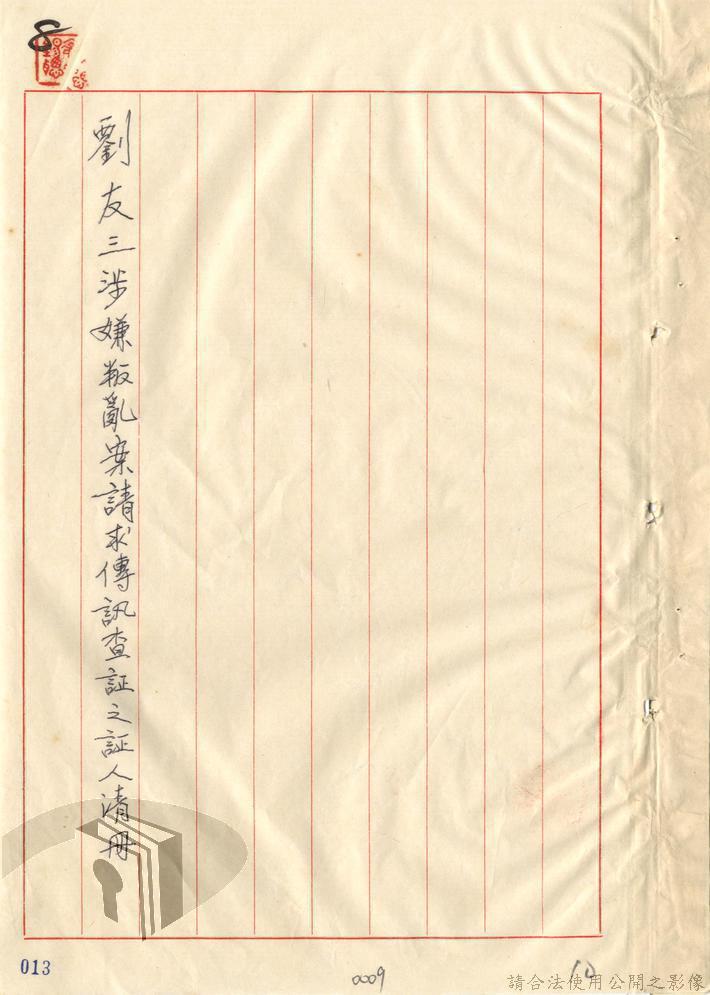 8
劉友三涉嫌叛亂案請求傳訊查証之証人清冊
013
0009
10
請合法使用公開之影像